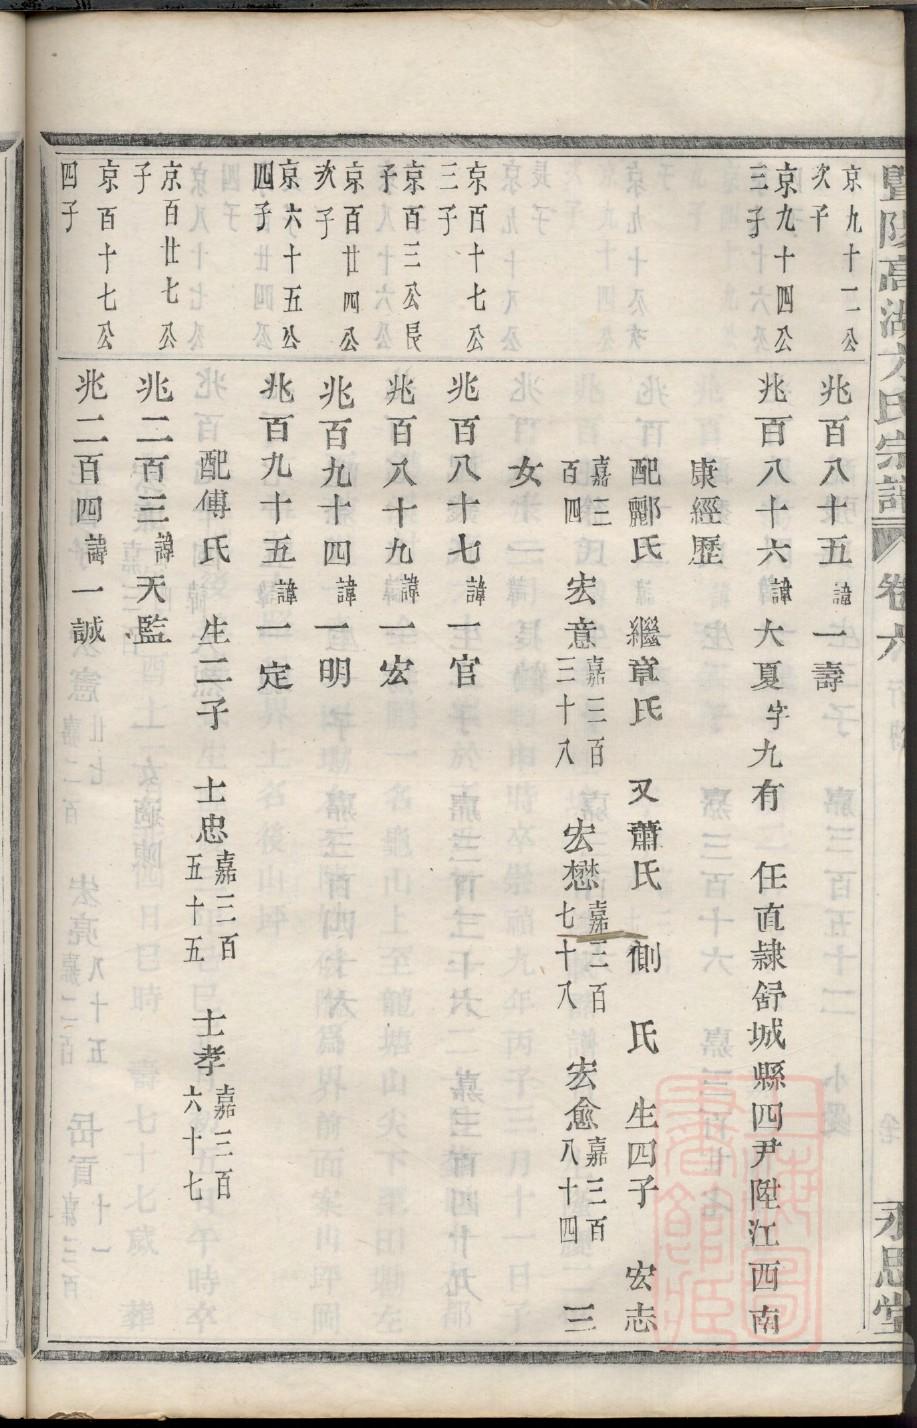 暨陽高湖方氏宗譜 卷六 永思堂
京九十二公次子
兆百八十五諱一壽
京九十四公三子
兆百八十六諱大夏字九有 任直隸舒城縣四尹陞江西南
康經歷
配酈氏 繼章氏 又蕭氏 側 氏 生四子 宏志
嘉三百四 宏意嘉三百三十八 宏懋嘉三百七十八 宏愈嘉三百八十四 三
女
京百十七公三子
兆百八十七諱一官
京百三公長子
兆百八十九諱一宏
京百廿四公次子
兆百九十四諱一明
京六十五公四子
兆百九十五諱一定
配傅氏 生二子 士忠嘉三百五十五 士孝嘉三百六十七
京百廿七公子
兆二百三諱天監
京百十七公四子
兆二百四諱一誠